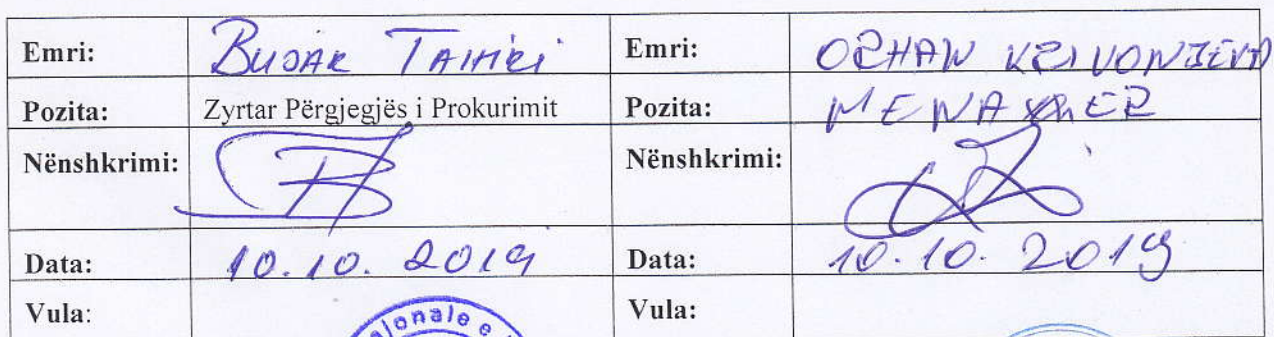 Emri: BUJAR TAHIRI Emri: ORHAN
Pozita: Zyrtar Përgjegjës i Prokurimit Pozita: MENAXHER
Nënshkrimi: Nënshkrimi:
Data: 10.10.2019 Data: 10.10.2019
Vula: Vula:
jonale e